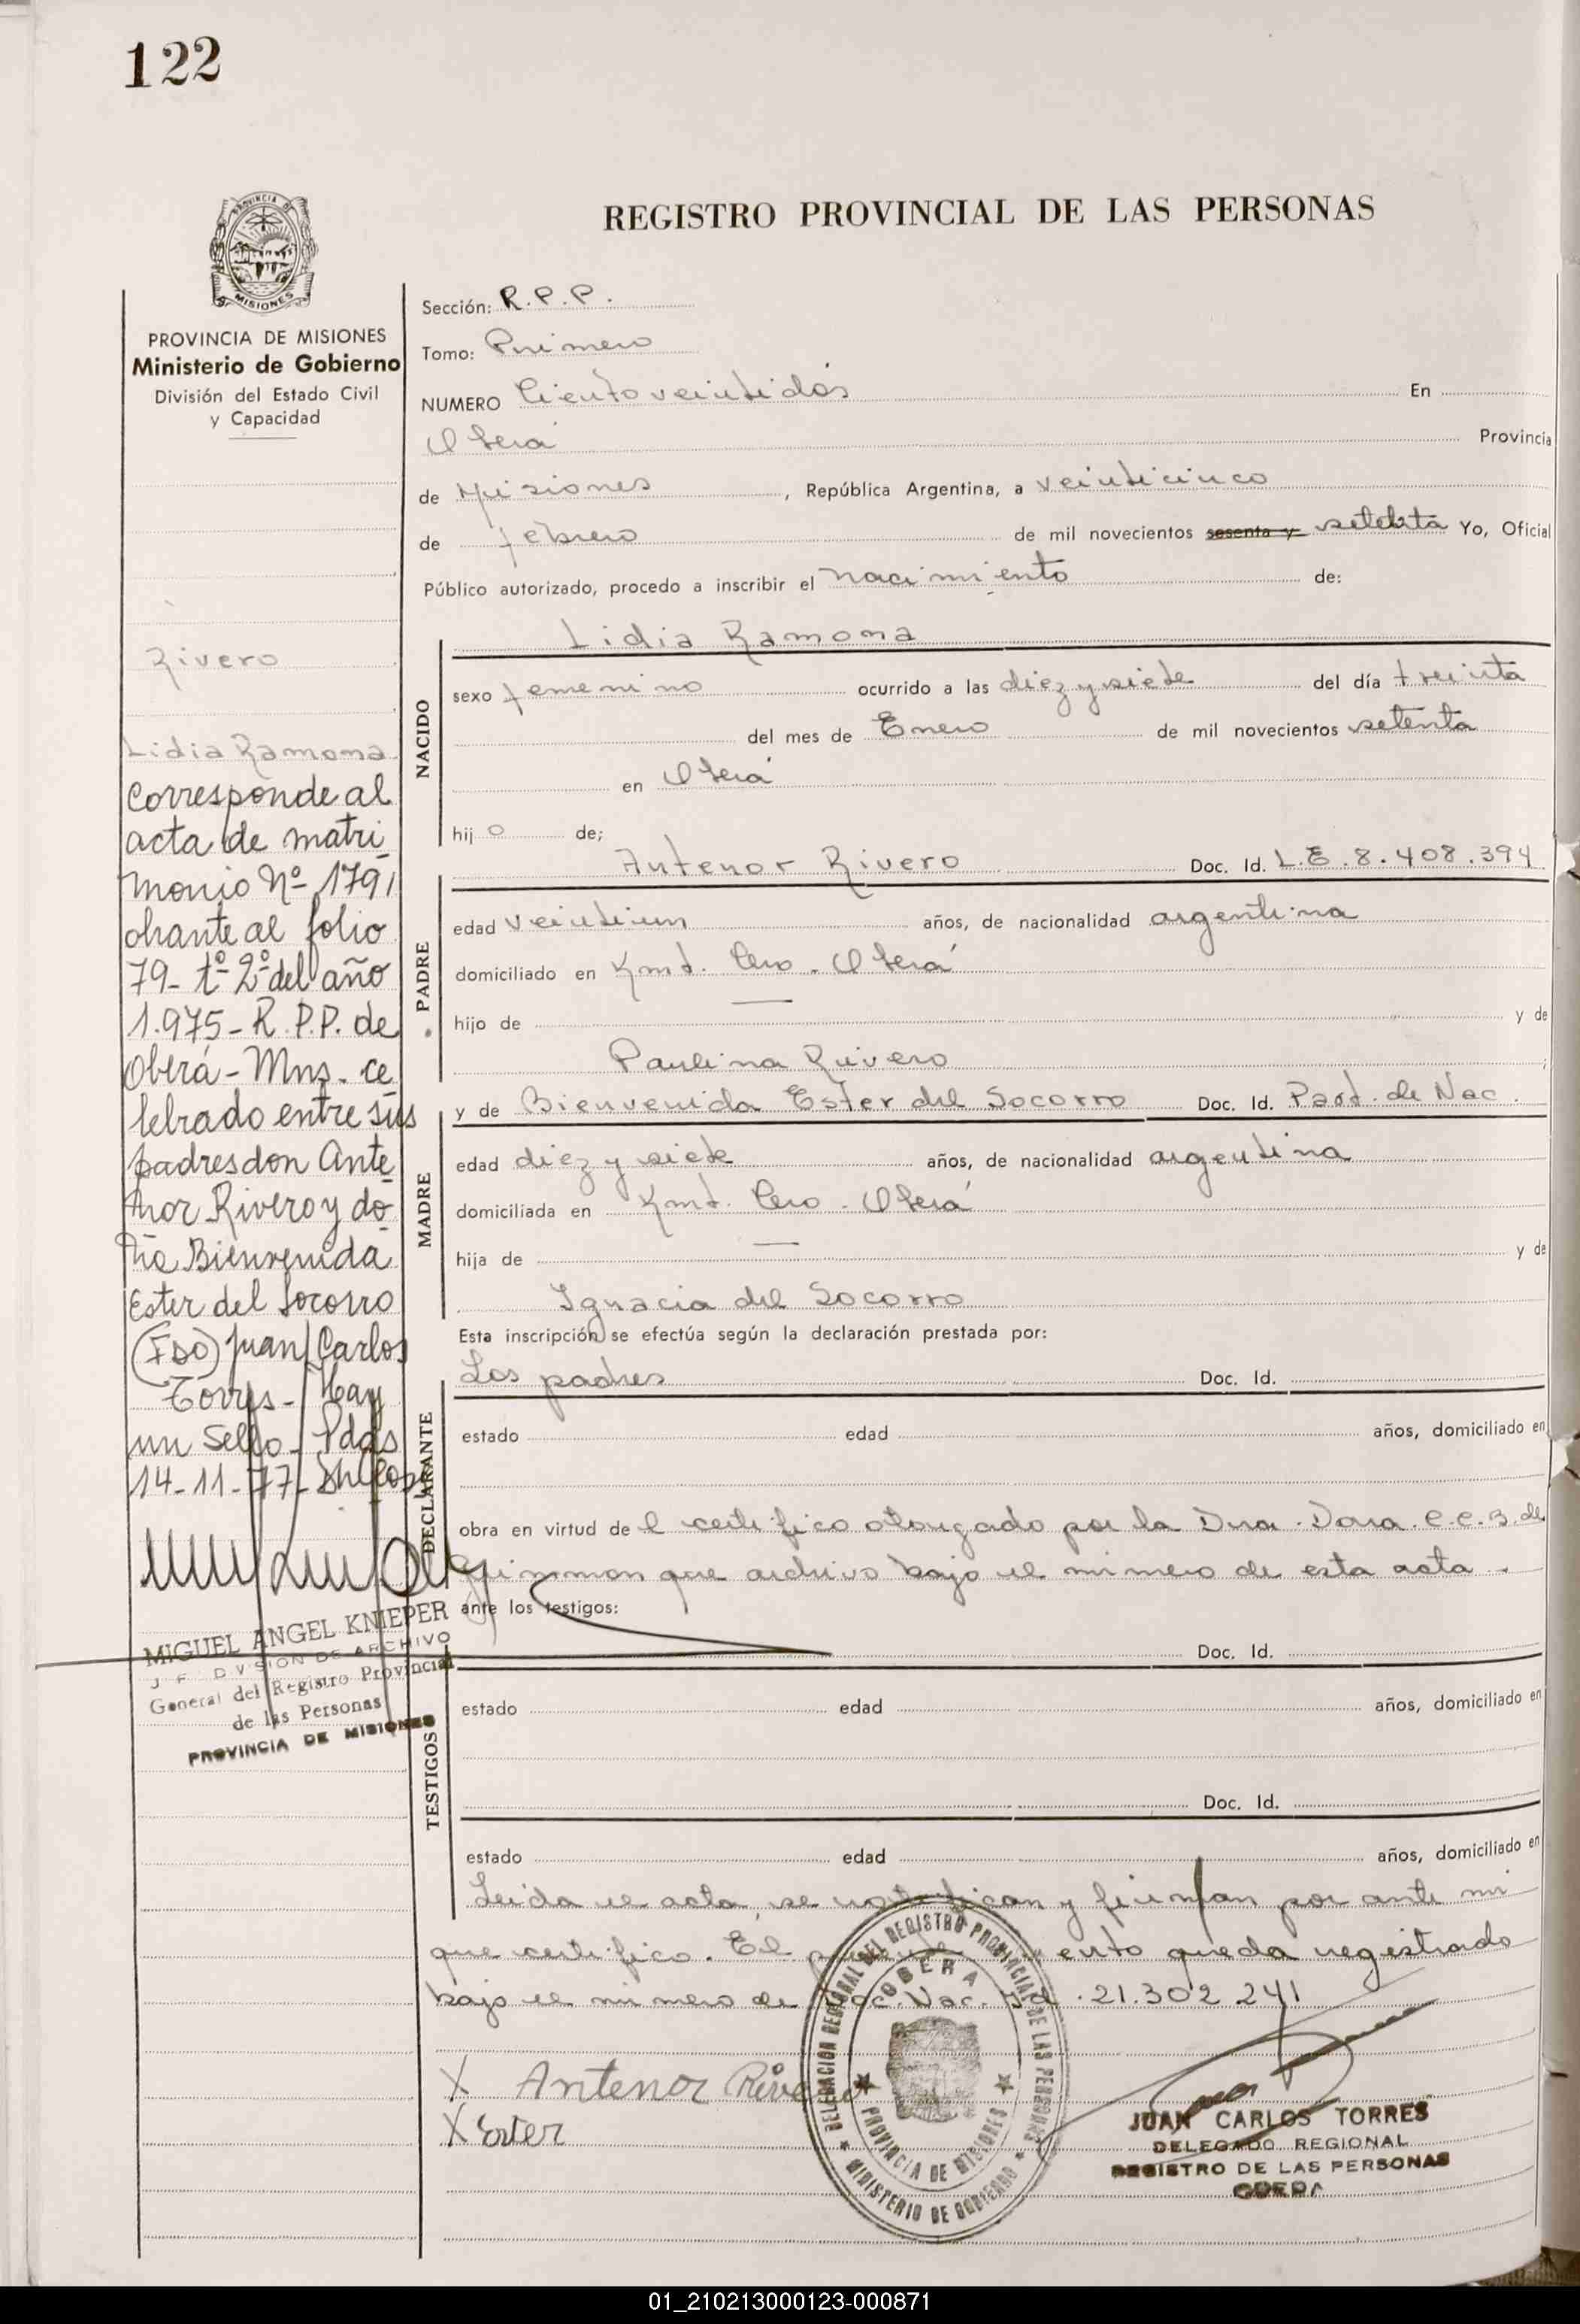 122
PROVINCIA DE
MISIONES
REGISTRO PROVINCIAL DE LAS PERSONAS
PROVINCIA DE MISIONES
Ministerio de Gobierno
División del Estado Civil
y Capacidad
Rivero
Lidia Ramona
Corresponde al
acta de matri
monio Nº 179,
obrante al folio
79- tº 2º del año
1.975- R.P.P. de
Oberá- Mns. ce
lebrado entre sus
padres don Ante
nor Rivero y do
ña Bienvenida
Ester del Socorro
(Fdo) Juan Carlos
Torres- Hay
un Sello- Pdas
14-11-77-
MIGUEL ANGEL KNIEPER
JEFE DIVISION DE ARCHIVO
General del Registro Provincial
de las Personas
PROVINCIA DE MISIONES
Sección: R.P.P.
Tomo: Primero
NUMERO Ciento veintidós En
Oberá Provincia
de Misiones , República Argentina, a veinticinco
de febrero de mil novecientos sesenta y setenta Yo, Oficial
Público autorizado, procedo a inscribir el nacimiento de:
NACIDO
Lidia Ramona
sexo femenino ocurrido a las diez y siete del día treinta
del mes de Enero de mil novecientos setenta
en Oberá
hijo de;
PADRE
Antenor Rivero Doc. Id. L.E.8.408.394
edad veintiun años, de nacionalidad argentina
domiciliado en Kmt. Cero. Oberá
hijo de — y de
Paulina Rivero
MADRE
y de Bienvenida Ester del Socorro Doc. Id. Part. de Nac.
edad diez y siete años, de nacionalidad argentina
domiciliada en Kmt. Cero. Oberá
hija de — y de
Ignacia del Socorro
Esta inscripción se efectúa según la declaración prestada por:
DECLARANTE
Los padres Doc. Id.
estado edad años, domiciliado en
obra en virtud del certifico otorgado por la Dra. Dora. C.C.B. de
que archivo bajo el número de esta acta.
ante los testigos:
TESTIGOS
Doc. Id.
estado edad años, domiciliado en
Doc. Id.
estado edad años, domiciliado en
Leida el acta, se notifican y firman por ante mi
que certifico. El queda registrado
bajo el número de Doc. Nac. Id. 21.302.241
X Antenor Rivero
X Ester
DELEGACION REGIONAL DEL REGISTRO PROVINCIAL DE LAS PERSONAS
OBERA
PROVINCIA DE MISIONES
MINISTERIO DE GOBIERNO
JUAN CARLOS TORRES
DELEGADO REGIONAL
REGISTRO DE LAS PERSONAS
OBERA
01_210213000123-000871